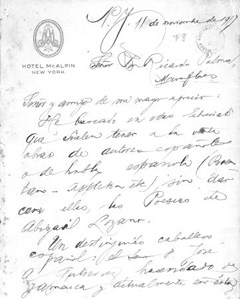 HOTEL McALPIN
NEW YORK
N.Y. 11 de noviembre de 19
Señor Don Ricardo Palma,
Miraflores
Señor y amigo de mi mayor aprecio:
He buscado en estas librerías
que suelen tener a la venta
obras de autores españoles
o de habla española
tano - Appleton etc) sin dar
con ellas, las Poesías de
Abigail Lozano.
Un distinguido caballero
español: el Señor José
hacendado de
Jamaica y actualmente en esta